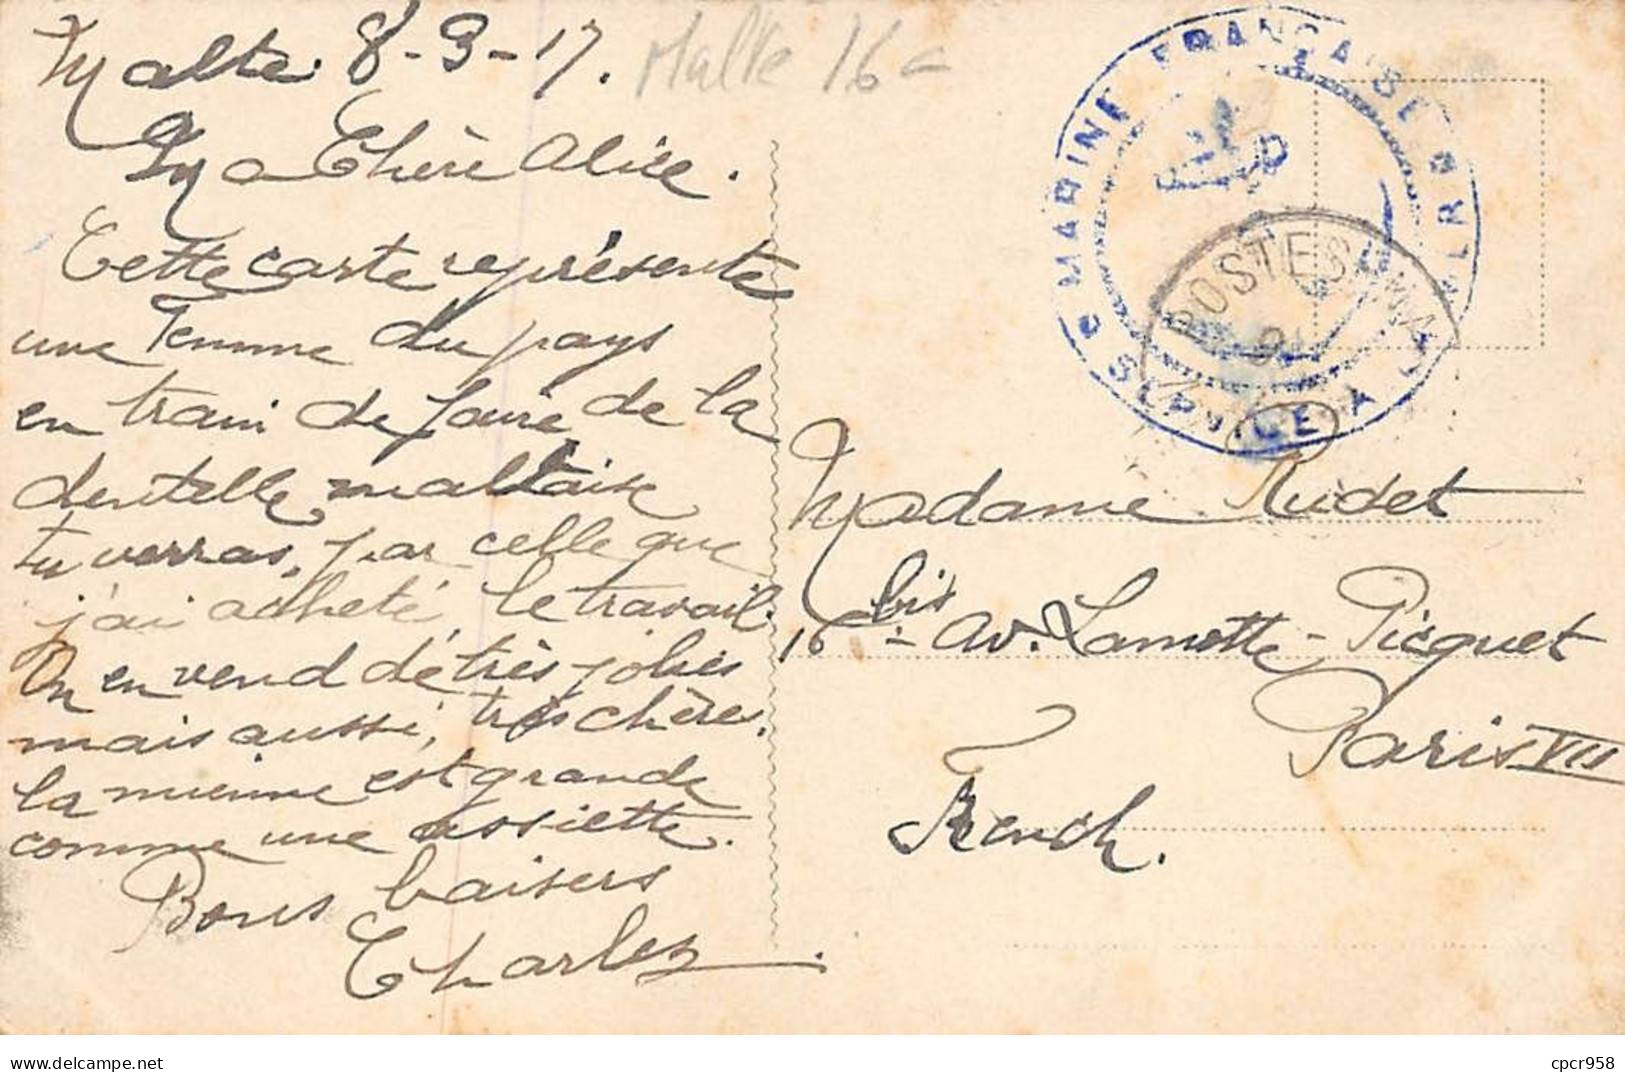 Malte. 8-3-17.
Malte 16-
Ma Chère Alice.
Cette carte représente
une Femme du pays
en train de faire de la
dentelle maltaise
tu verras, par celle que
j'ai acheté, le travail.
On en vend de très jolies
mais aussi, très chères.
la mienne est grande
comme une assiette.
Bons baisers
Charles
MARINE FRANÇAISE
SERVICE A LA MER
POSTES MA
Madame Rudet
16 bis Av. Lamotte-Picquet
Paris VII
French.
www.delcampe.net
cpcr958